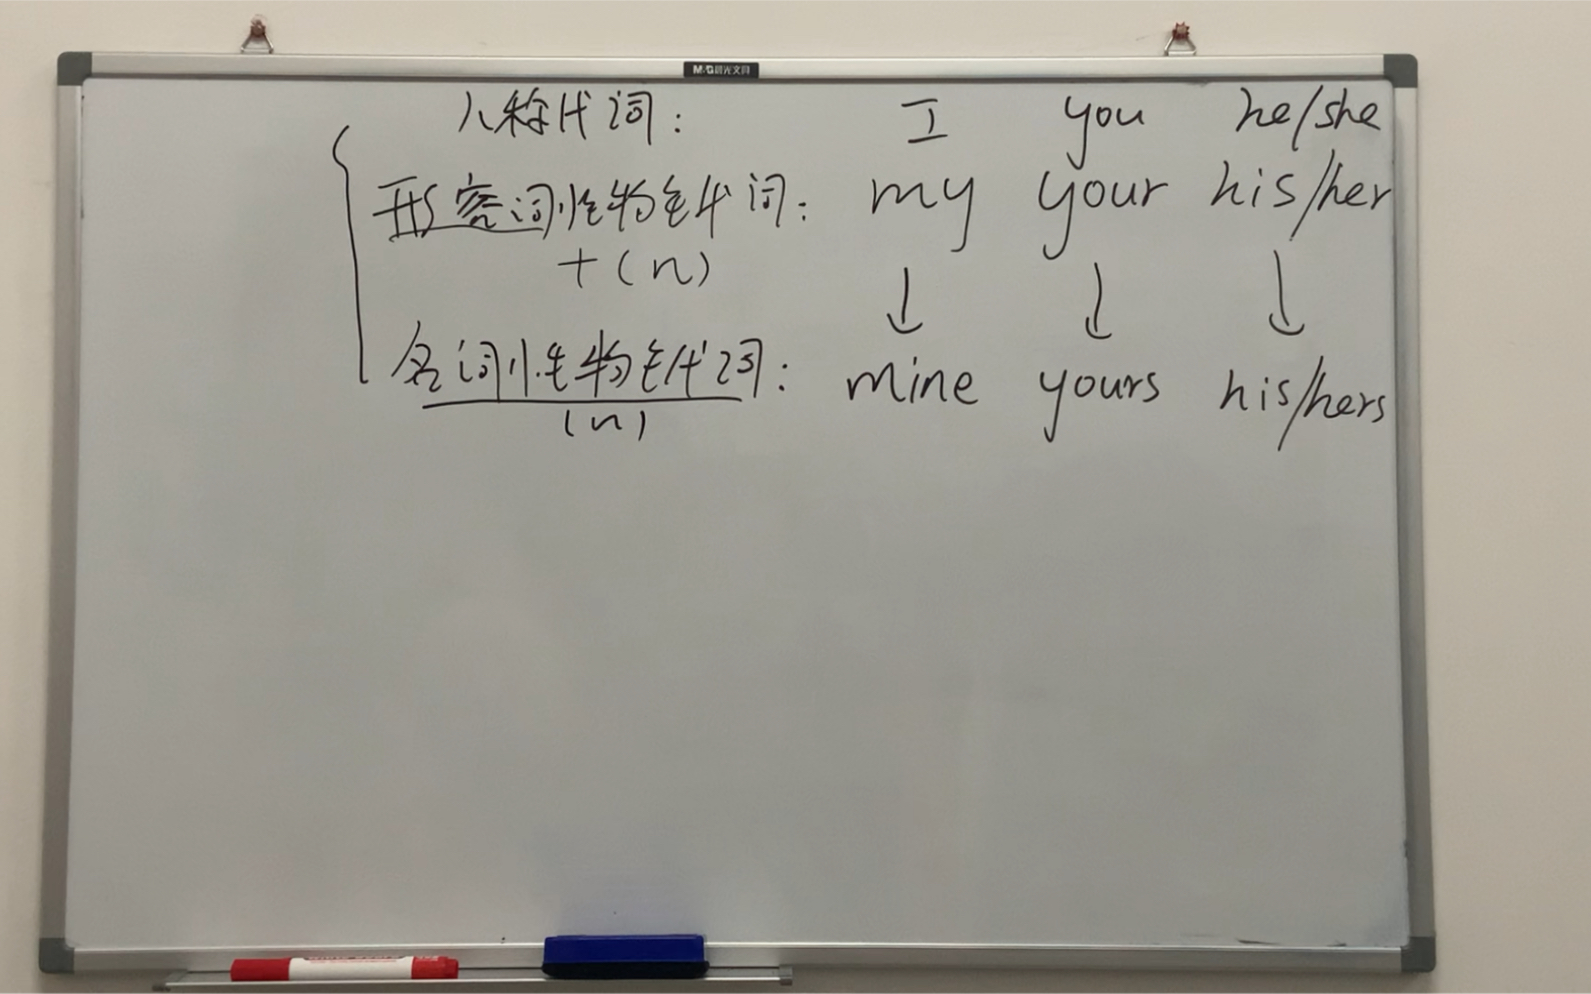 M&G晨光文具
人称代词： I you he/she
形容词性物主代词： my your his/her
+(n)
↓ ↓ ↓
名词性物主代词： mine yours his/hers
(n)